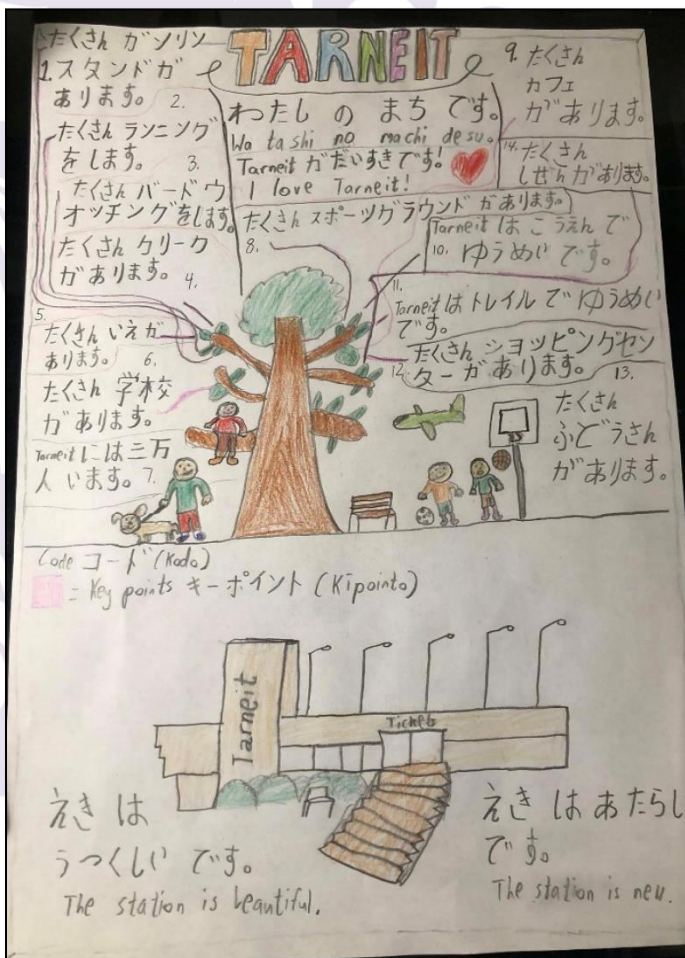 TARNEIT
わたし の まち です。
Wa ta shi no machi de su.
Tarneit が だいすき です!
I love Tarneit!
1. たくさん ガソリン
スタンドが
あります。
2. たくさん ランニング
をします。
3. たくさん バードウ
オッチングをします。
4. たくさん クリーク
があります。
5. たくさん いえが
あります。
6. たくさん 学校
があります。
7. Tarneit には三万
人 います。
8. たくさん スポーツグラウンド があります。
9. たくさん
カフェ
があります。
14. たくさん
しぜんがあります。
10. Tarneit は こうえん で
ゆうめい です。
11. Tarneit は トレイル で ゆうめい
です。
12. たくさん ショッピングセン
ターが あります。
13. たくさん
ふどうさん
があります。
Code コード (Kodo)
= Key points キーポイント (Kipointo)
Tarneit
Tickets
えき は
うつくしい です。
The station is beautiful.
えき は あたらし
です。
The station is new.